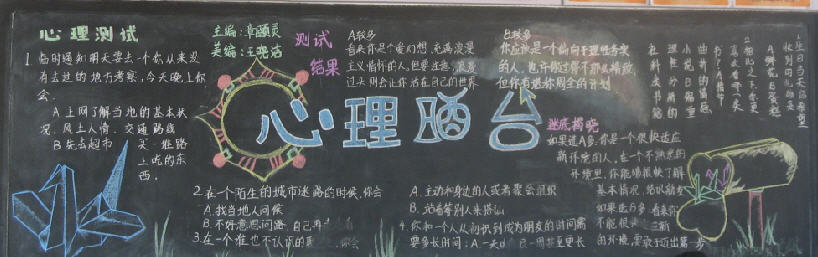 心理测试
主编:章颐灵
美编:王晓洁
1.临时通知明天要去一个你从来没
有去过的地方考察,今天晚上你
会
A上网了解当地的基本状
况、风土人情、交通路线
B先去超市 买 在路
上吃的东
西。
测试
结果
A较多
看来你是个爱幻想、充满浪漫
主义情怀的人,但要注意,浪漫
过头则会让你活在自己的世界
B较多
你应该是一个偏向于理性务实
的人,也许你过得不那么精致,
但你有着你周全的计划
心理晒台
谜底揭晓
如果选A多,你是一个很快适应
新环境的人,在一个不熟悉的
环境里,你能很快了解
基本情况,给以
如果选B多,看来你
不能很 新
的环境,要敢于迈出第一步
2.在一个陌生的城市迷路的时候,你会
A.找当地人问候
B.不好意思问路,自己再
3.在一个谁也不认识的 你会
A.主动和身边的人或者聚会组织
B.站着等别人来搭讪
4.你和一个人从初识到成为朋友的时间需
要多长时间:A一天 B一周甚至更长
1.生日当天
收到的
A鲜花B蛋糕
2.
喜欢看哪一类
书?A情节
曲折的言情
小说B偏重
理性分析的
社科类书籍